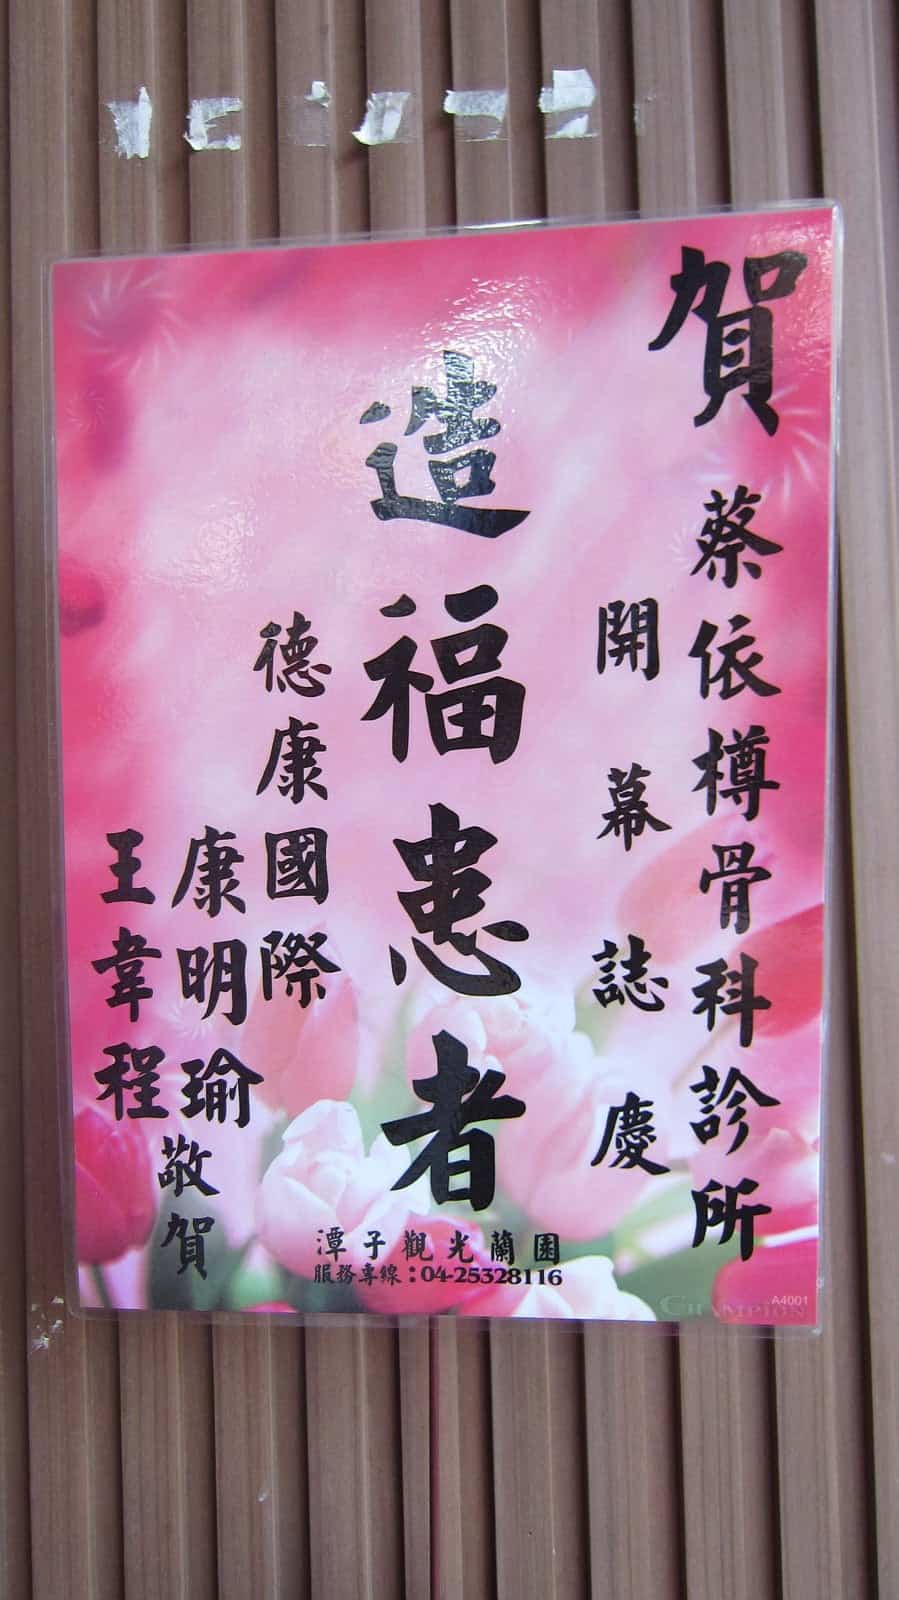 賀
蔡依樽骨科診所
開幕誌慶
造福患者
德康國際
康明瑜
王韋程
敬賀
潭子觀光蘭園
服務專線：04-25328116
CHAMPION
A4001